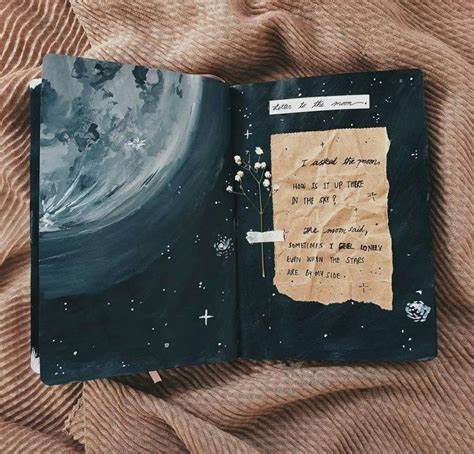 Letter to the moon.
I asked the moon,
HOW IS IT UP THERE
IN THE SKY?
the moon said,
SOMETIMES I FEEL LONELY
EVEN WHEN THE STARS
ARE BY MY SIDE.